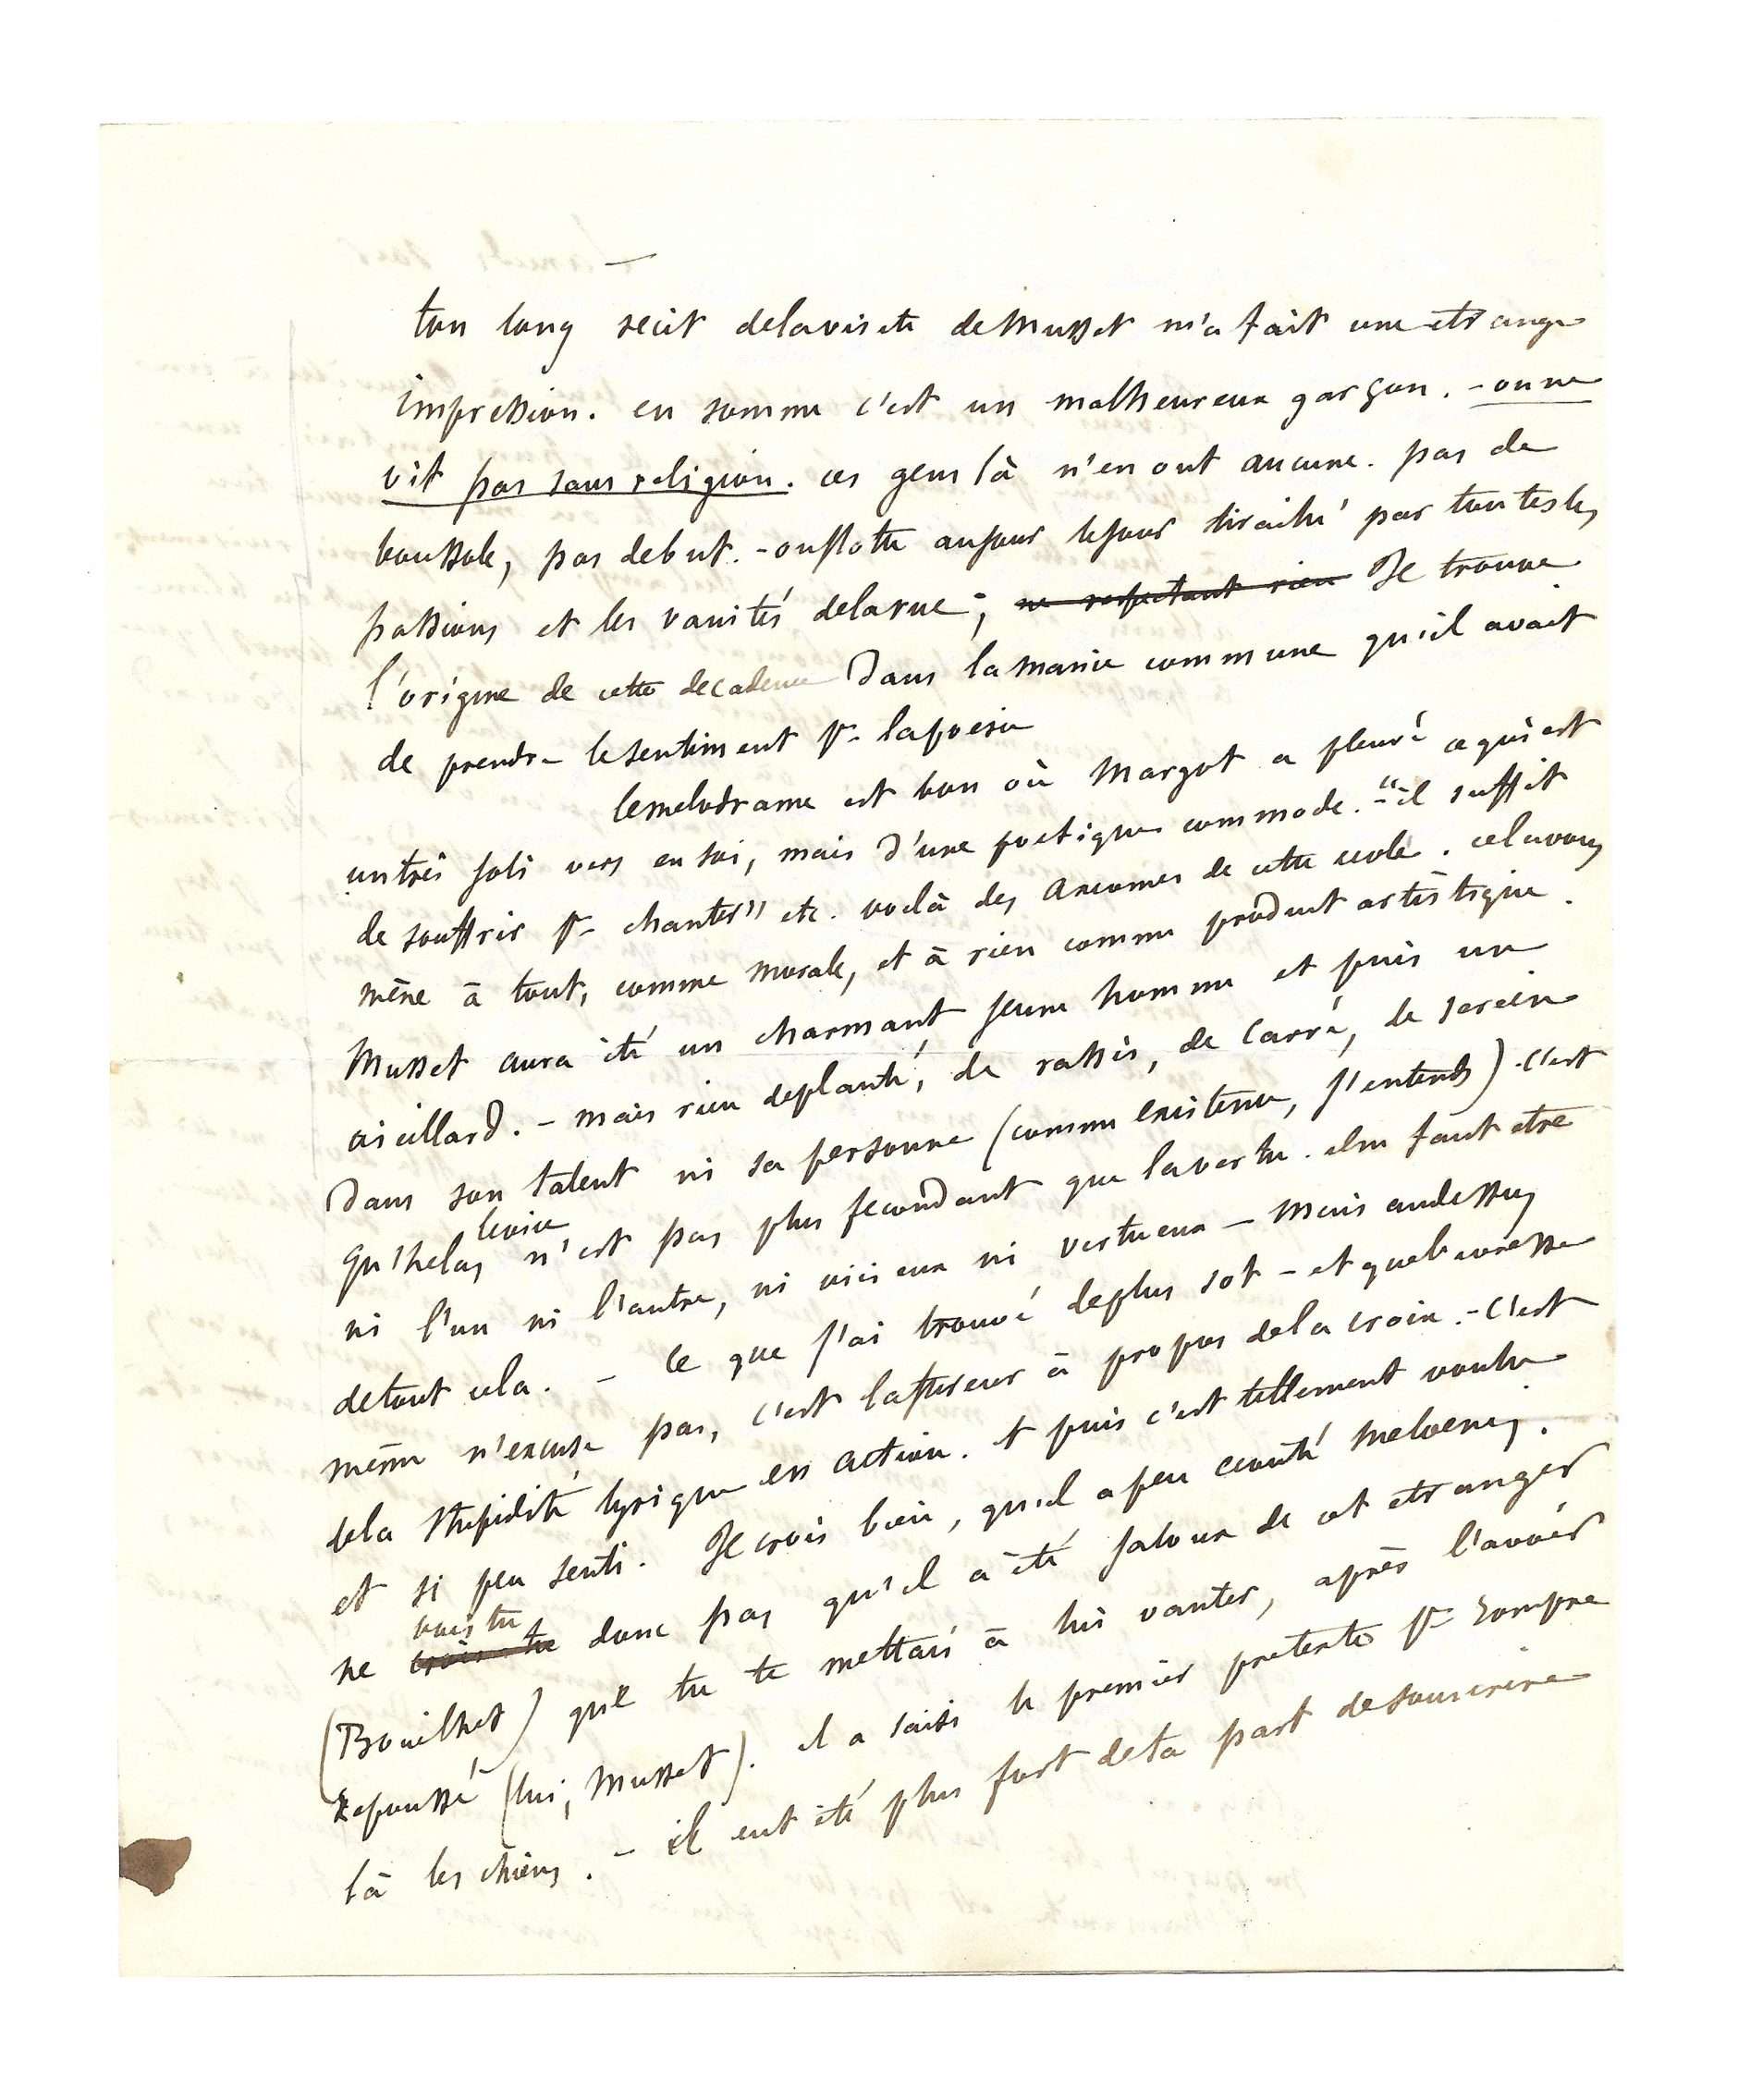 ton long récit de la visite de Musset m'a fait une etrange
impression. en somme c'est un malheureux garçon. - on ne
vit pas sans religion. ces gens là n'en ont aucune. pas de
boussole, pas de but. - on flotte au jour le jour tiraillé par toutes les
passions et les vanités de la rue ; ne respectant rien Je trouve
l'origine de cette decadence Dans la manie commune qu'il avait
de prendre le sentiment pr la poesie
le melodrame est bon où Margot a pleuré ce qui est
un très joli vers en soi, mais D'une poetique commode. - "il suffit
de souffrir pr chanter" etc. voilà des axiomes de cette ecole. cela vous
mène à tout, comme morale, et à rien comme produit artistique.
Musset aura été un charmant jeune homme et puis un
vieillard. - mais rien de planté, de rassis, de carré, de serein
Dans son talent ni sa personne (comme existence, j'entends) - c'est
le vice
qu'helas, n'est pas plus fecondant que la vertu. il ne faut etre
ni l'un ni l'autre, ni vicieux ni vertueux - mais audessus
de tout cela. - Ce que j'ai trouvé de plus sot - et que l'ivresse
même n'excuse pas, c'est la fureur à propos de la croix. - C'est
de la stupidité lyrique en action. et puis c'est tellement voulu
et si peu senti. Je crois bien, qu'il a peu ecouté Melaenis.
vois tu
ne crois-tu donc pas qu'il a été jaloux de cet etranger
(Bouilhet) que tu te mettais à lui vanter, après l'avoir
repoussé (lui, Musset). il a saisi le premier pretexte pr rompre
là les chiens. - il eut été plus fort de ta part de souscrire